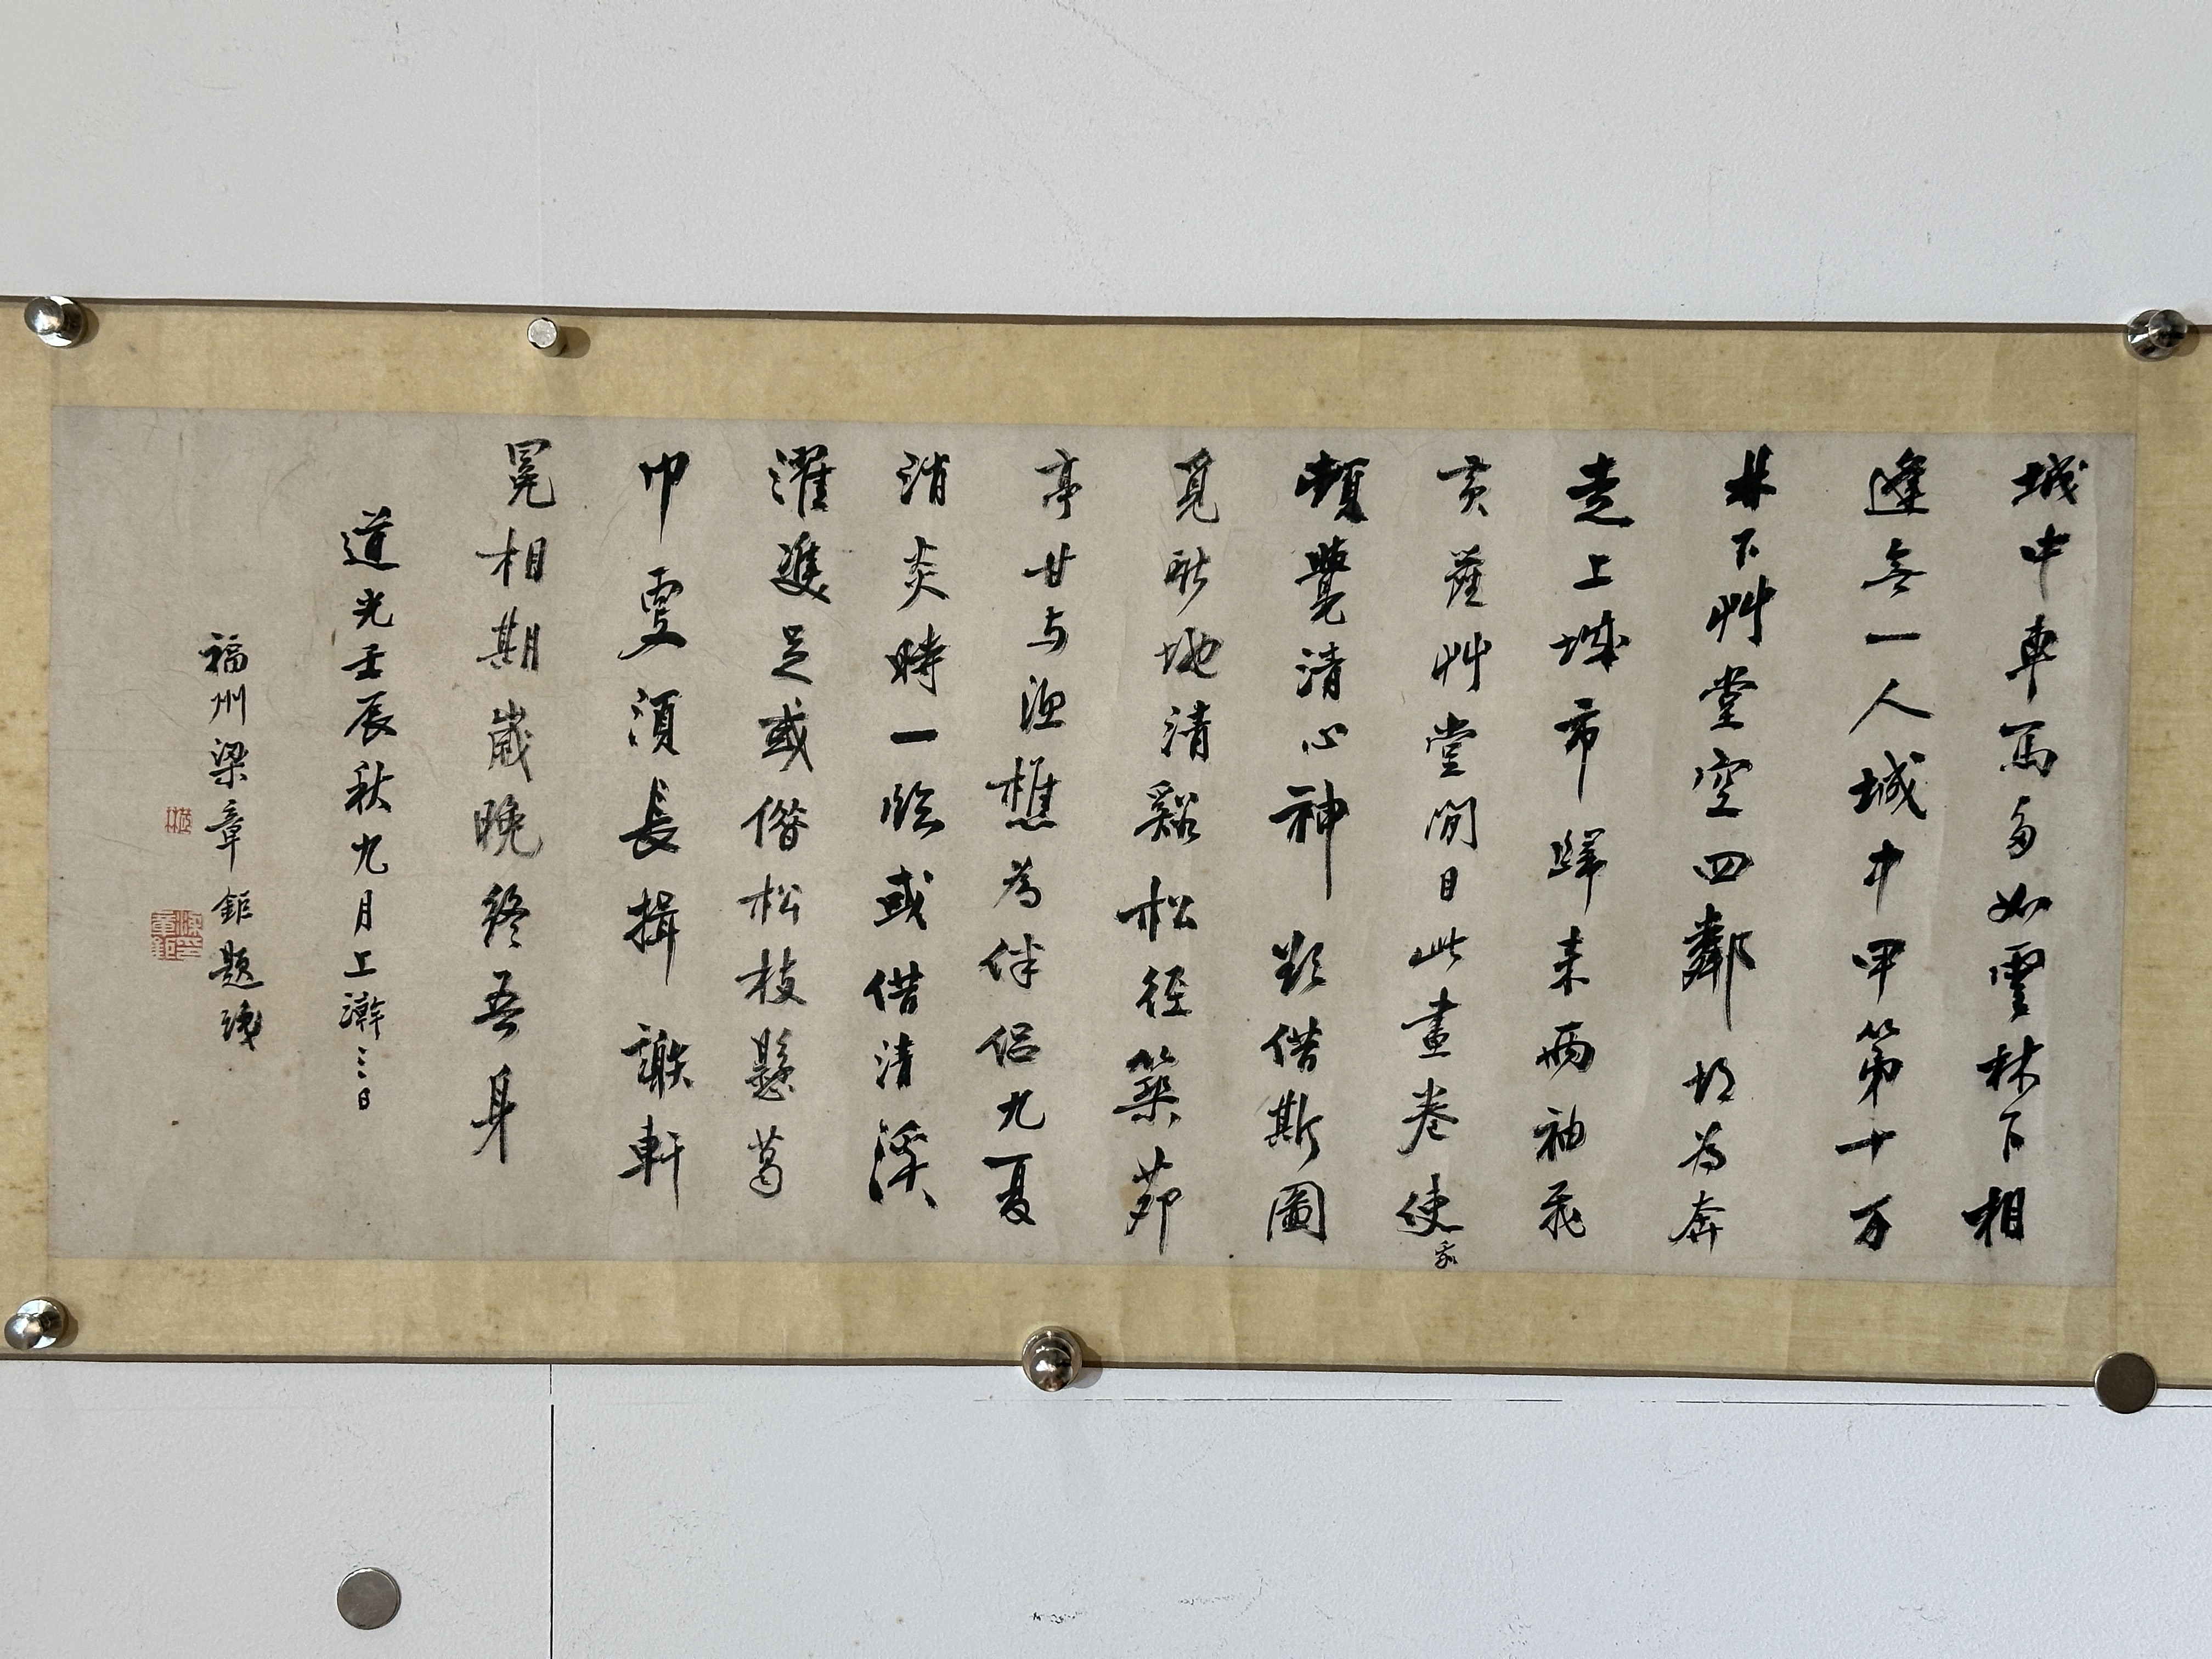 城中車馬多如雲林下相
逢無一人城中甲第十万
林下艸堂空四鄰胡为奔
走上城市歸来兩袖飛
黄塵艸堂閒日此畫卷使我
頓覺清心神借斯圖
覓隙地清谿松徑築茆
亭甘与漁樵為伴侶九夏
消炎時一臨或借清溪
濯雙足或借松枝懸葛
巾更須長揖謝軒
冕相期歲晚終吾身
道光壬辰秋九月上澣三日
福州梁章鉅題識